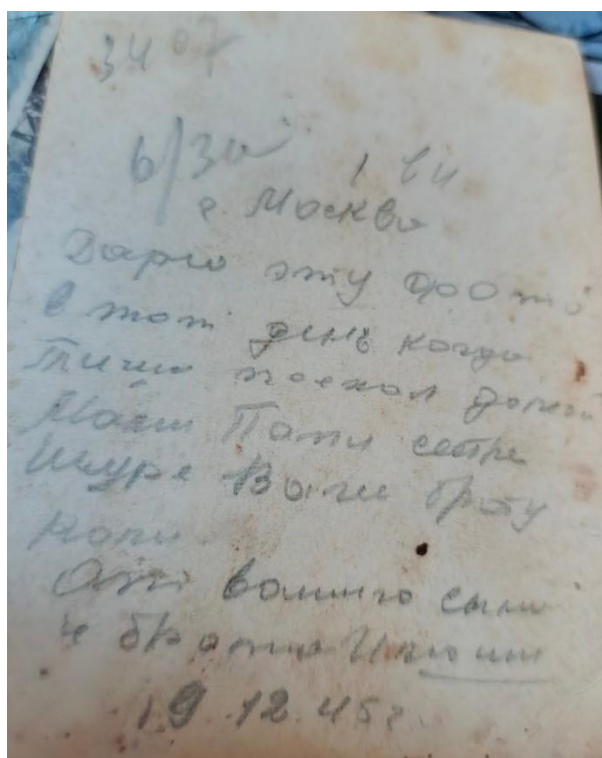 3407
6/3а 1 ви
г. Москва
Дарю эту фото
в тот день когда
Тиша поехал домой
Маме Папи сетре
Шуре Вале брату
Коли
От вашего сына
и брата Илюши
19.12.45г